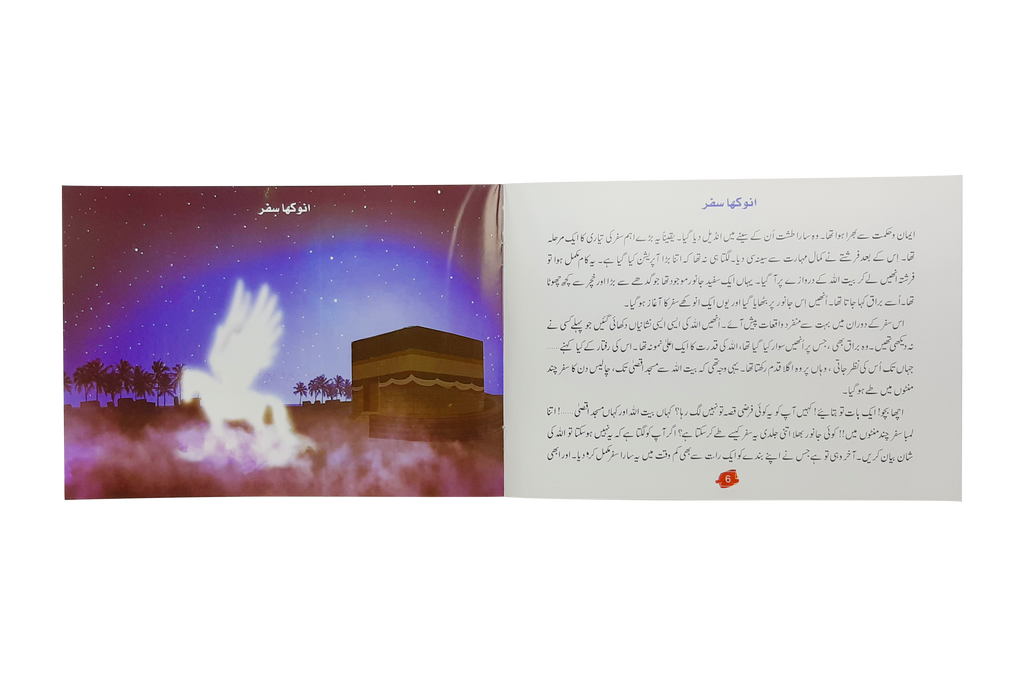 انوکھا سفر
انوکھا سفر
ایمان و حکمت سے بھرا ہوا تھا۔ وہ سارا طشت اُن کے سینے میں انڈیل دیا گیا۔ یقیناً یہ بڑے اہم سفر کی تیاری کا ایک مرحلہ
تھا۔ اِس کے بعد فرشتے نے کمال مہارت سے سینہ سی دیا۔ لگتا ہی نہ تھا کہ اتنا بڑا آپریشن کیا گیا ہے۔ یہ کام مکمل ہوا تو
فرشتہ اُنھیں لے کر بیت اللہ کے دروازے پر آ گیا۔ یہاں ایک سفید جانور موجود تھا جو گدھے سے بڑا اور خچر سے کچھ چھوٹا
تھا۔ اُسے براق کہا جاتا تھا۔ اُنھیں اس جانور پر بٹھایا گیا اور یوں ایک انوکھے سفر کا آغاز ہو گیا۔
اس سفر کے دوران میں بہت سے منفرد واقعات پیش آئے۔ اُنھیں اللہ کی ایسی ایسی نشانیاں دکھائی گئیں جو پہلے کسی نے
نہ دیکھی تھیں۔ وہ براق بھی، جس پر اُنھیں سوار کیا گیا تھا، اللہ کی قدرت کا ایک اعلیٰ نمونہ تھا۔ اس کی رفتار کے کیا کہنے......
جہاں تک اُس کی نظر جاتی، وہاں پر وہ اگلا قدم رکھتا تھا۔ یہی وجہ تھی کہ بیت اللہ سے مسجد اقصیٰ تک، چالیس دن کا سفر چند
منٹوں میں طے ہو گیا۔
اچھا بچو! ایک بات تو بتایئے! کہیں آپ کو یہ کوئی فرضی قصہ تو نہیں لگ رہا؟ کہاں بیت اللہ اور کہاں مسجد اقصیٰ......! اتنا
لمبا سفر چند منٹوں میں!! کوئی جانور بھلا اتنی جلدی یہ سفر کیسے طے کر سکتا ہے؟ اگر آپ کو لگتا ہے کہ یہ نہیں ہو سکتا تو اللہ کی
شان بیان کریں۔ آخر وہی تو ہے جس نے اپنے بندے کو ایک رات سے بھی کم وقت میں یہ سارا سفر مکمل کرا دیا۔ اور ابھی
6